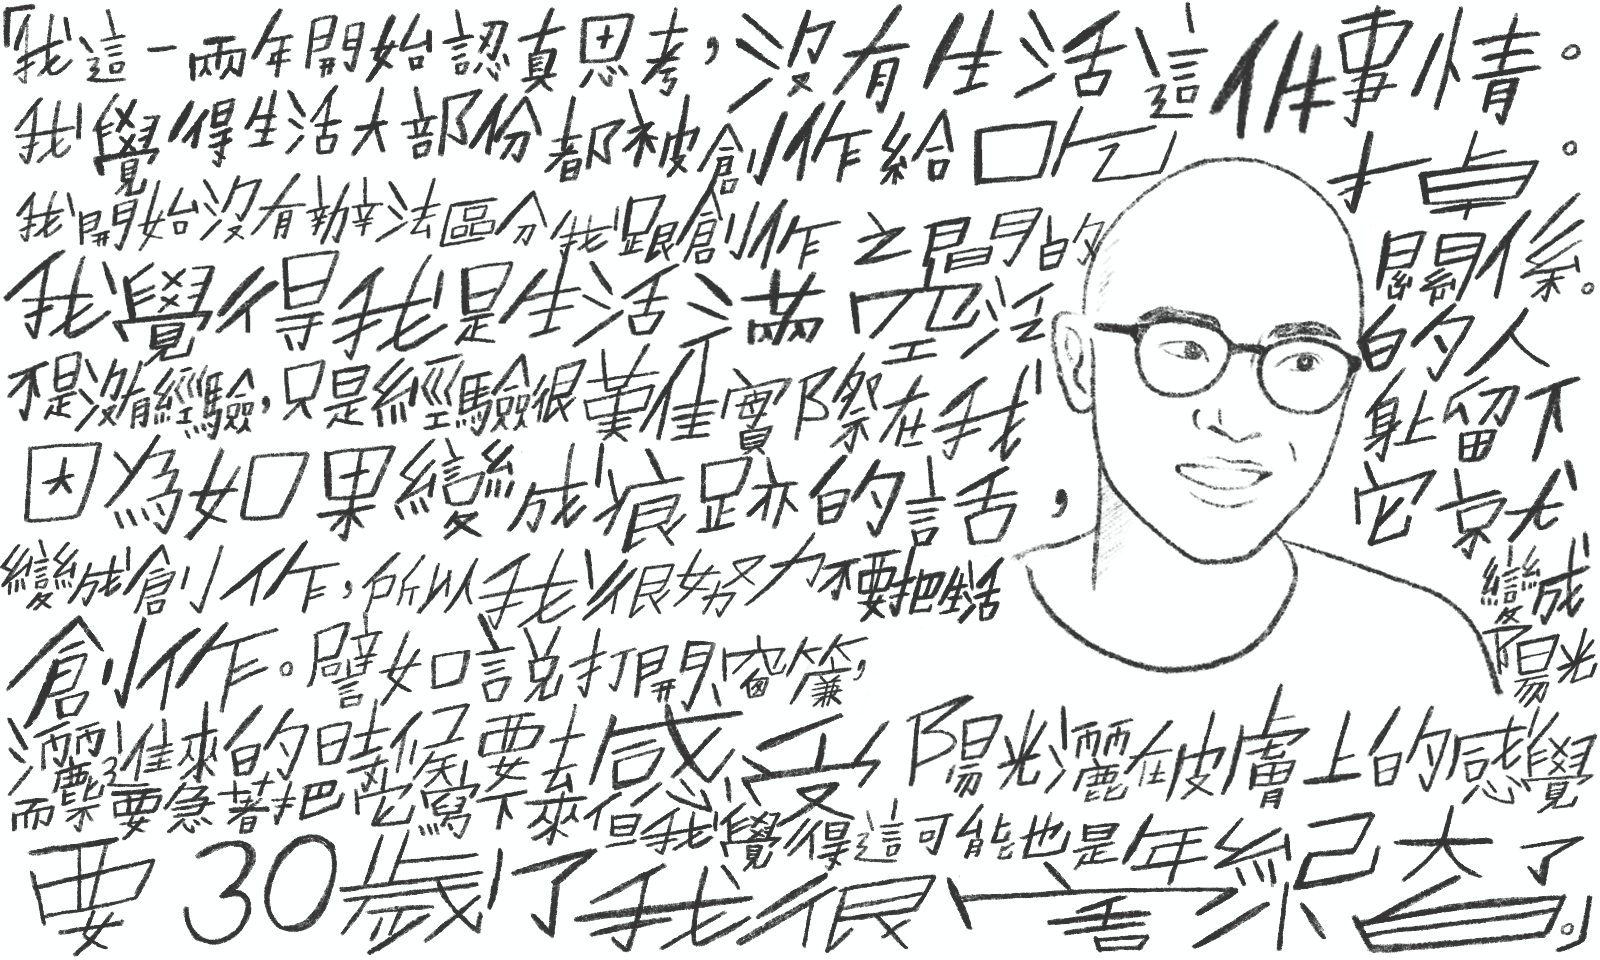 「我這一兩年開始認真思考，沒有生活這件事情。
我覺得生活大部份都被創作給吃掉。
我開始沒有辦法區分我跟創作之間的關係。
我覺得我是生活滿空泛的人
不是沒有經驗，只是經驗很難實際在我身上留下
因為如果變成痕跡的話，它就
變成創作，所以我很努力不要把生活變成
創作。譬如說打開窗簾，陽光
灑進來的時候要去感受陽光灑在皮膚上的感覺
而不要急著把它寫下來但我覺得這可能也是年紀大了
要30歲了我很害怕」